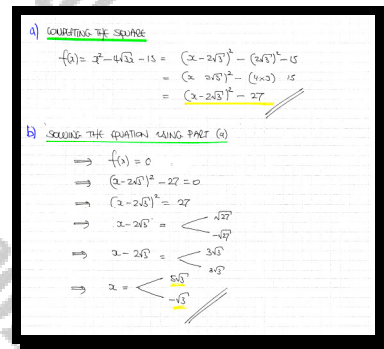 a) COMPLETING THE SQUARE
f(x) = x² - 4√3x - 15 = (x - 2√3)² - (2√3)² - 15
= (x 2√3)² - (4×3) 15
= (x - 2√3)² - 27
b) SOLVING THE EQUATION USING PART (a)
⟹ f(x) = 0
⟹ (x - 2√3)² - 27 = 0
⟹ (x - 2√3)² = 27
⟹ x - 2√3 = < √27
-√27
⟹ x - 2√3 = < 3√3
3√3
⟹ x = < 5√3
-√3